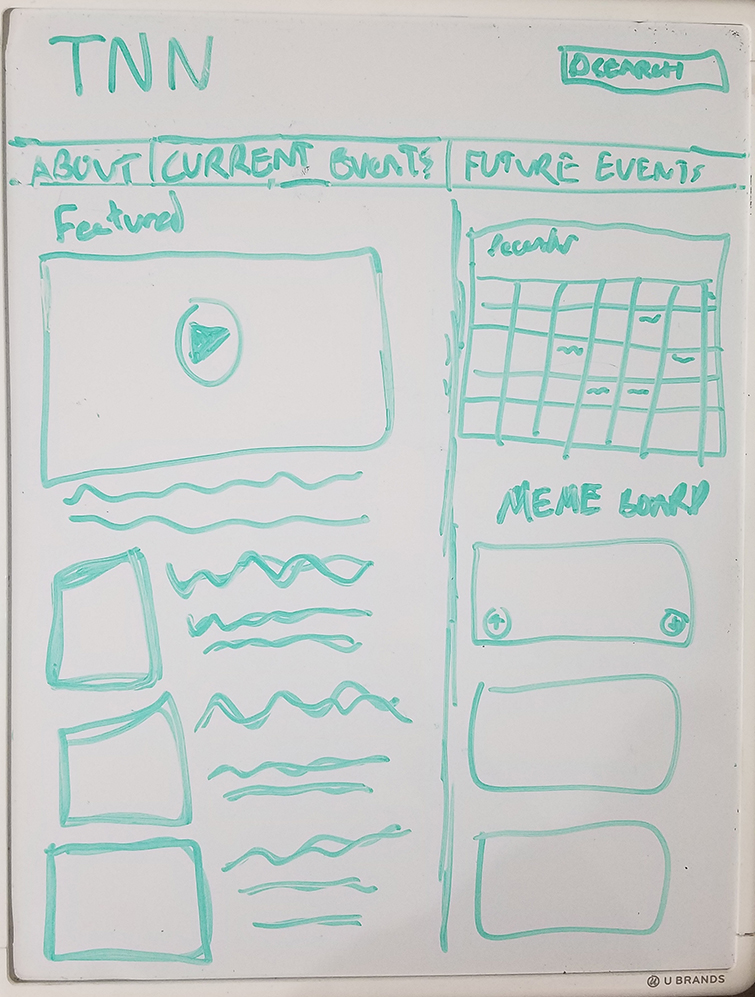 TNN
SEARCH
ABOUT CURRENT EVENTS FUTURE EVENTS
Featured
MEME BOARD
U BRANDS